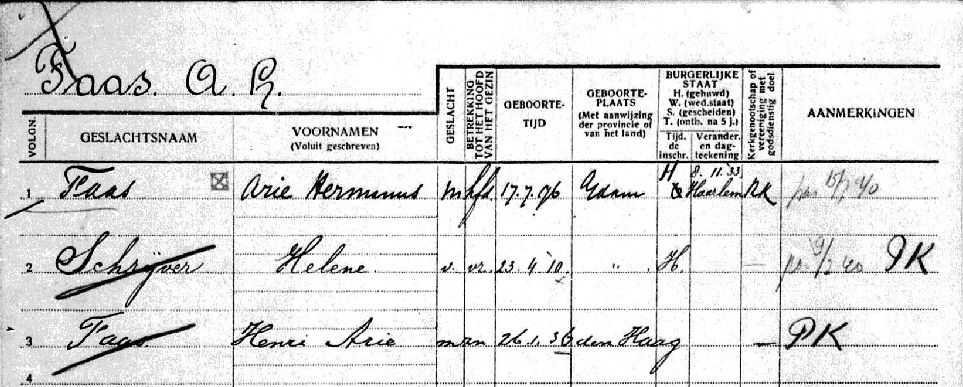 Faas. A. H.
VOLGN.
GESLACHTSNAAM
VOORNAMEN
(Voluit geschreven)
GESLACHT
BETREKKING TOT HET HOOFD VAN HET GEZIN
GEBOORTE-
TIJD
GEBOORTE-
PLAATS
(Met aanwijzing
der provincie of
van het land)
BURGERLIJKE
STAAT
H. (gehuwd)
W. (wed.staat)
S. (gescheiden)
T. (ontb. na 5 j.)
Tijd. de inschr.
Verander. en dag-teekening
Kerkgenootschap of vereeniging met godsdienstig doel
AANMERKINGEN
1 Faas Arie Hermanus m hfd. 17.7.06 Edam H 8.11.33 Haarlem RK 15/7 40
2 Schrijver Helene v. vr. 23 4 10 " H. — 9/2 40 PK
3 Faas Henri Arie m zn 26.1.36 den Haag — PK
4